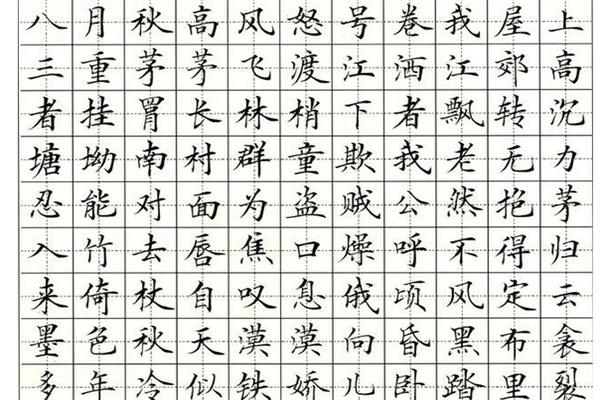 八月秋高风怒号卷我屋上
三重茅茅飞渡江洒江郊高
者挂罥长林梢下者飘转沉
塘坳南村群童欺我老无力
忍能对面为盗贼公然抱茅
入竹去唇焦口燥呼不得归
来倚杖自叹息俄顷风定云
墨色秋天漠漠向昏黑布衾
多年冷似铁娇儿卧踏里裂